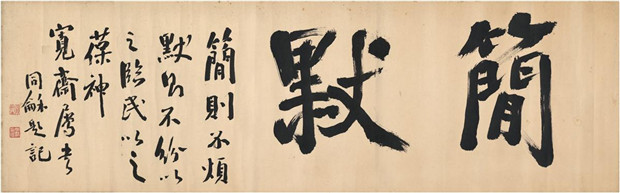 簡默
簡則不煩
默則不紛以
之臨民以之
葆神
寬齋屬書
同龢題記